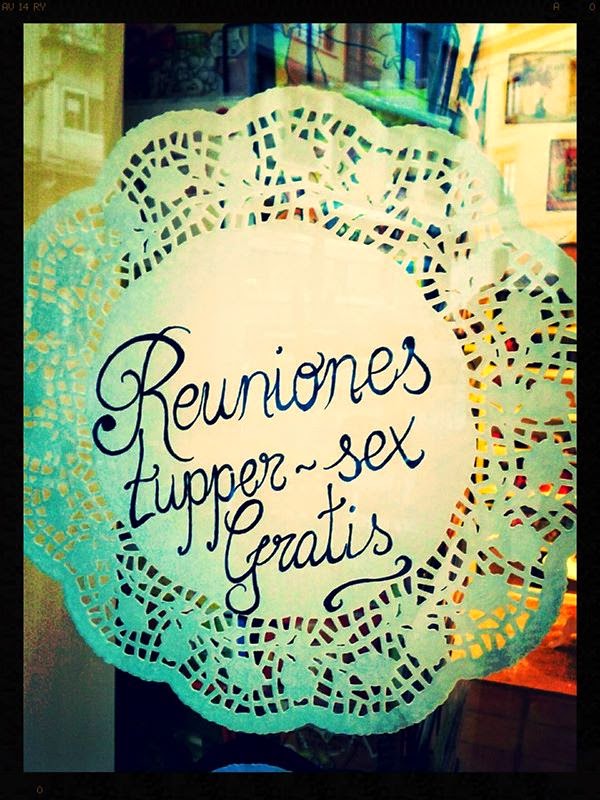 AV 14 RY
A 0
Reuniones
tupper~sex
Gratis
0